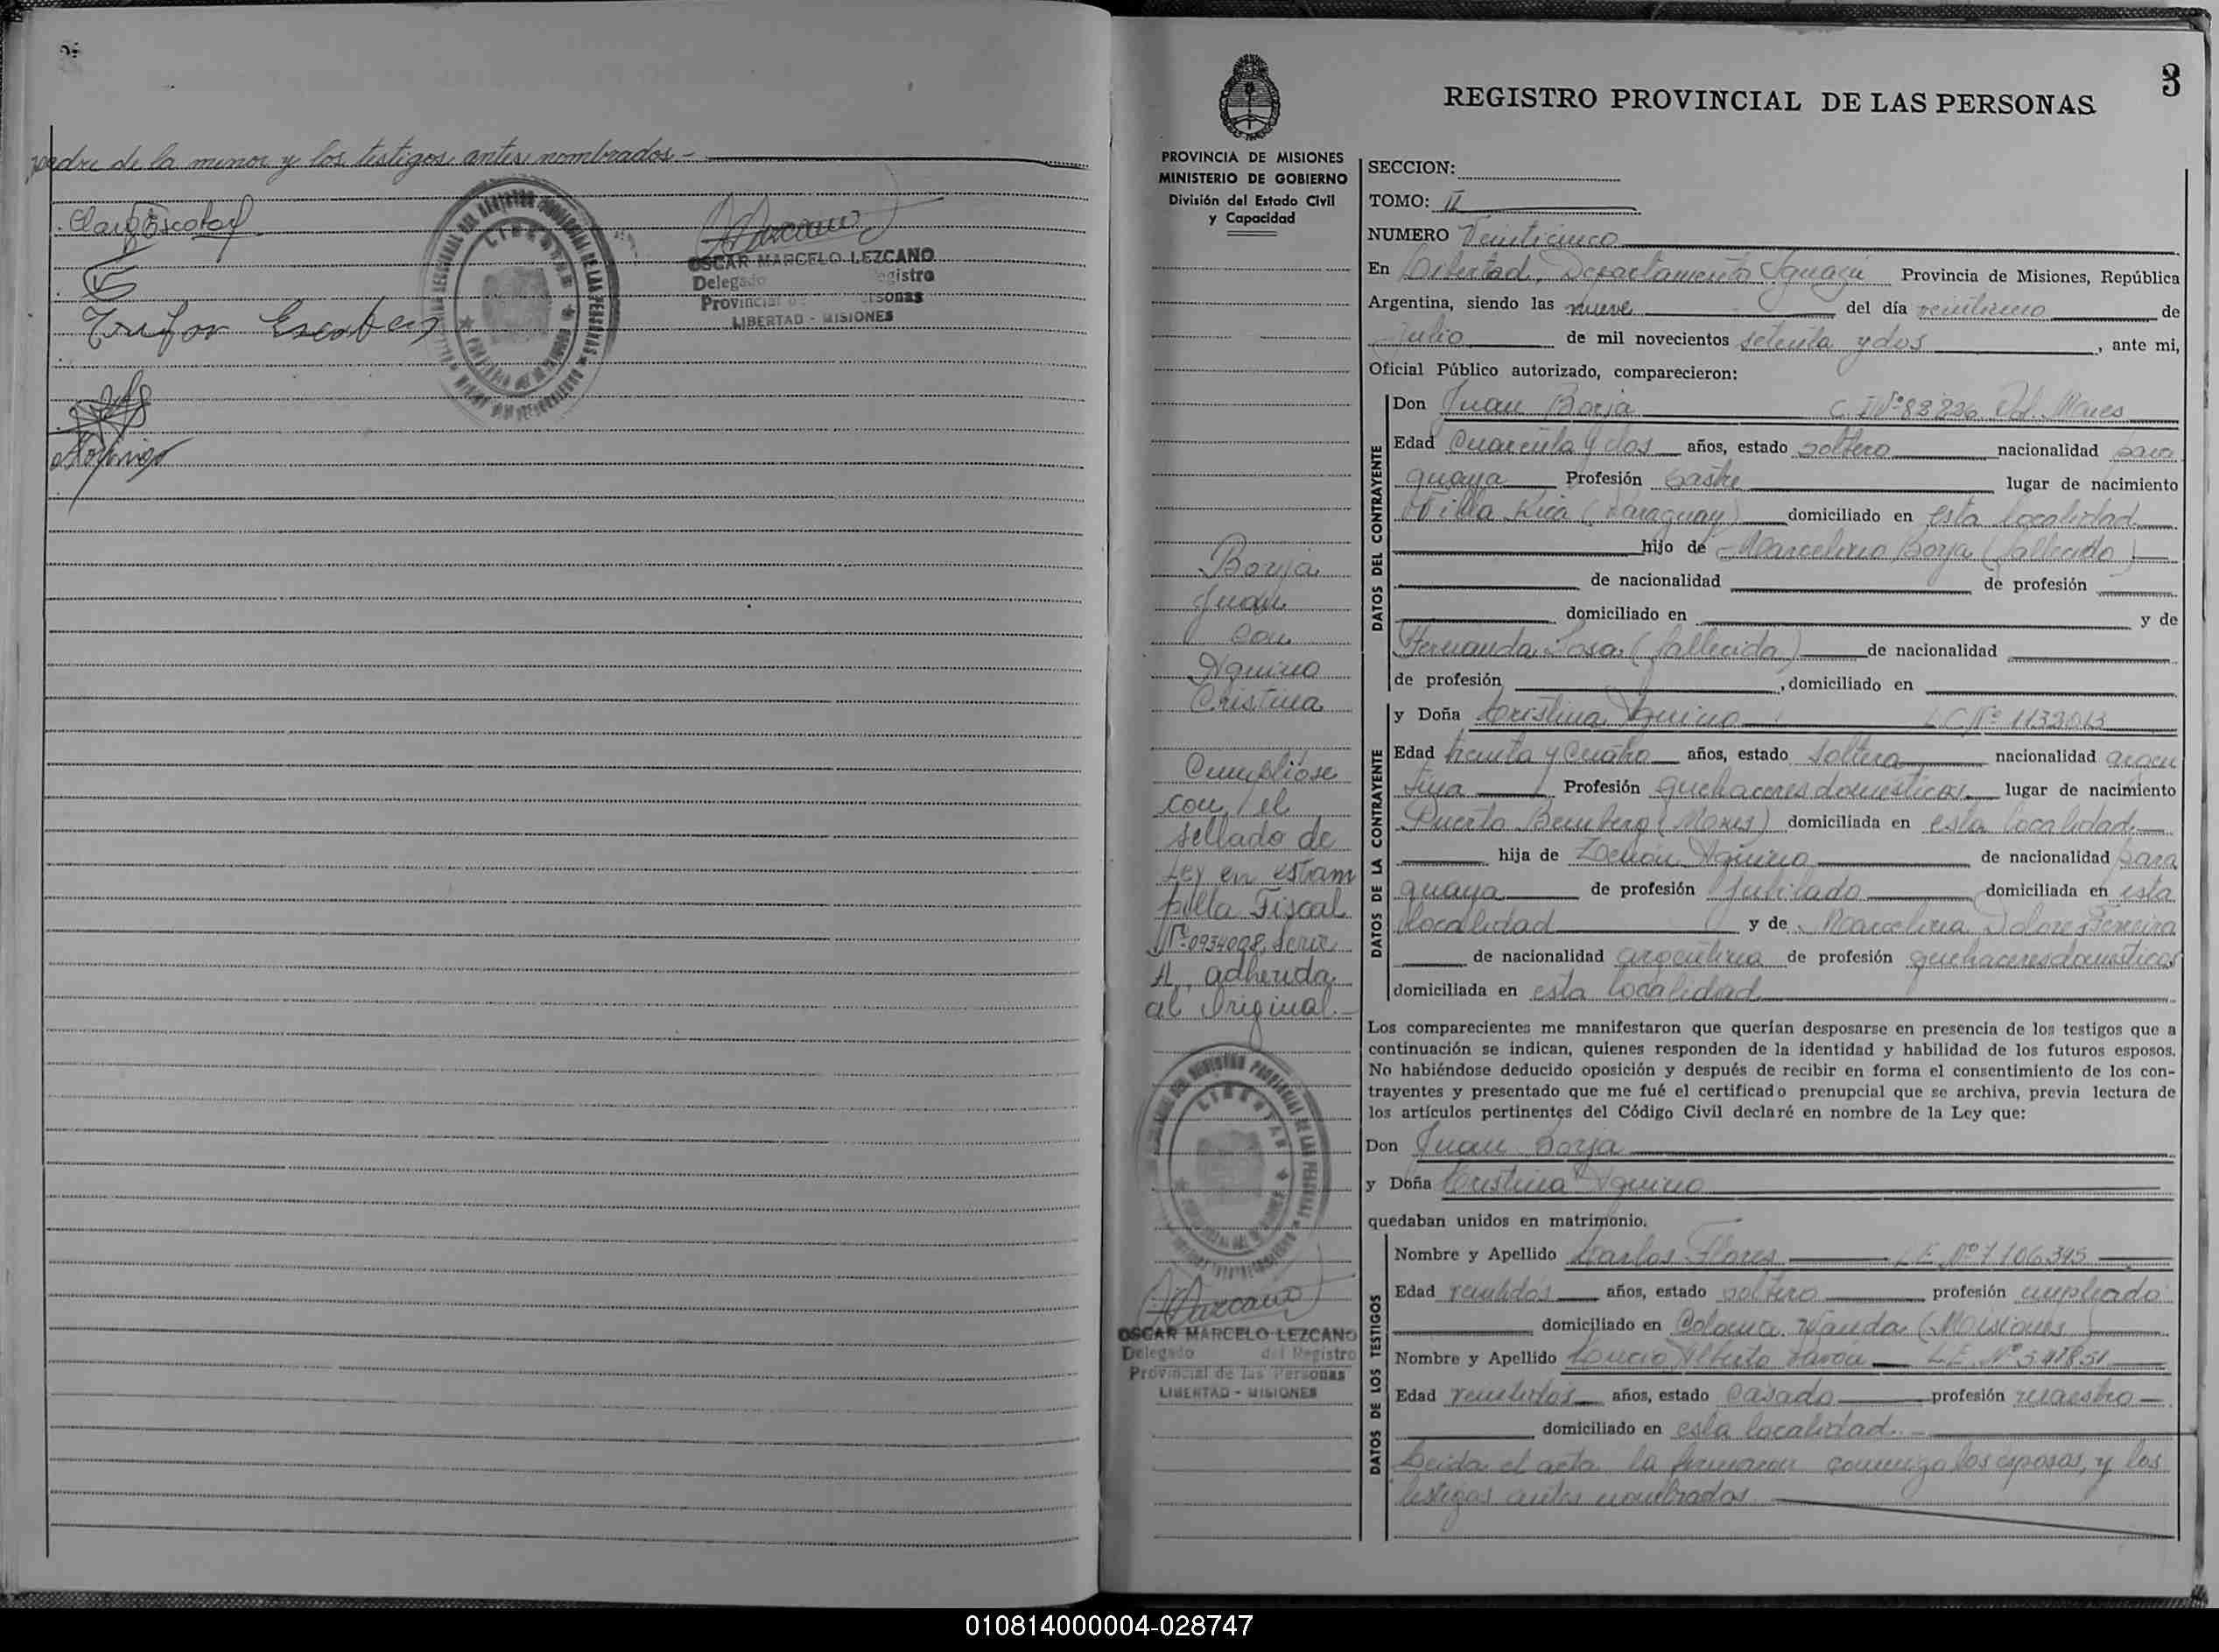 padre de la menor y los testigos antes nombrados -
Clara Escobar
Escobar
OSCAR MARCELO LEZCANO
Delegado Registro
Provincial
LIBERTAD - MISIONES
Domingo
3
REGISTRO PROVINCIAL DE LAS PERSONAS
PROVINCIA DE MISIONES
MINISTERIO DE GOBIERNO
División del Estado Civil
y Capacidad
Borja
Juan
con
Aquino
Cristina
Cumplióse
con el
sellado de
Ley en estam
pilla Fiscal
Nº 0934008, Serie
A, adherida
al Original.-
OSCAR MARCELO LEZCANO
Delegado del Registro
Provincial de las Personas
LIBERTAD - MISIONES
SECCION:
TOMO: II
NUMERO Veinticinco
En Libertad, Departamento Iguazú Provincia de Misiones, República
Argentina, siendo las nueve del día veintiuno de
Julio de mil novecientos setenta y dos, ante mi,
Oficial Público autorizado, comparecieron:
DATOS DEL CONTRAYENTE
Don Juan Borja C. I Nº 82226 Pol. Mnes
Edad Cuarenta y dos años, estado soltero nacionalidad para
guaya Profesión Sastre lugar de nacimiento
Villa Rica (Paraguay) domiciliado en esta localidad
hijo de Marcelino Borja (fallecido)
de nacionalidad de profesión
domiciliado en y de
Fernanda Sosa (fallecida) de nacionalidad
de profesión , domiciliado en
DATOS DE LA CONTRAYENTE
y Doña Cristina Aquino L C Nº 1132013
Edad treinta y cuatro años, estado soltera nacionalidad argen
tina Profesión quehaceres domésticos lugar de nacimiento
Puerto Bemberg (Mnes) domiciliada en esta localidad
hija de Zenón Aquino de nacionalidad para
guaya de profesión Jubilado domiciliada en esta
localidad y de Marcelina Dolores Ferreira
de nacionalidad argentina de profesión quehaceres domésticos
domiciliada en esta localidad
Los comparecientes me manifestaron que querían desposarse en presencia de los testigos que a
continuación se indican, quienes responden de la identidad y habilidad de los futuros esposos.
No habiéndose deducido oposición y después de recibir en forma el consentimiento de los con-
trayentes y presentado que me fué el certificado prenupcial que se archiva, previa lectura de
los artículos pertinentes del Código Civil declaré en nombre de la Ley que:
Don Juan Borja
y Doña Cristina Aquino
quedaban unidos en matrimonio.
DATOS DE LOS TESTIGOS
Nombre y Apellido Carlos Flores L E Nº 7106395
Edad veintidos años, estado soltero profesión empleado
domiciliado en Colonia Wanda (Misiones)
Nombre y Apellido Alberto L.E. Nº
Edad veintidos años, estado casado profesión maestro -
domiciliado en esta localidad. -
Leida el acta la firmaron conmigo los esposos, y los
testigos antes nombrados
010814000004-028747